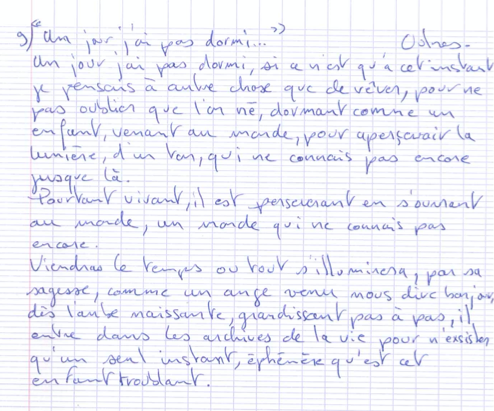 9) "Un jour j'ai pas dormi..."
Un jour j'ai pas dormi, si ce n'est qu'à cet instant
je pensais à autre chose que de rêver, pour ne
pas oublier que l'on né, dormant comme un
enfant, venant au monde, pour aperçevoir la
lumière, d'un ton, qui ne connais pas encore
jusque là.
Pourtant vivant, il est perseverant en s'ouvrant
au monde, un monde qui ne connais pas
encore.
Viendras le temps ou tout s'illuminera, par sa
sagesse, comme un ange venu nous dire bonjour,
dès l'aube naissante, grandissant pas à pas, il
entre dans les archives de la vie pour n'exsister
qu'un seul instant, éphémère qu'est cet
enfant troublant.